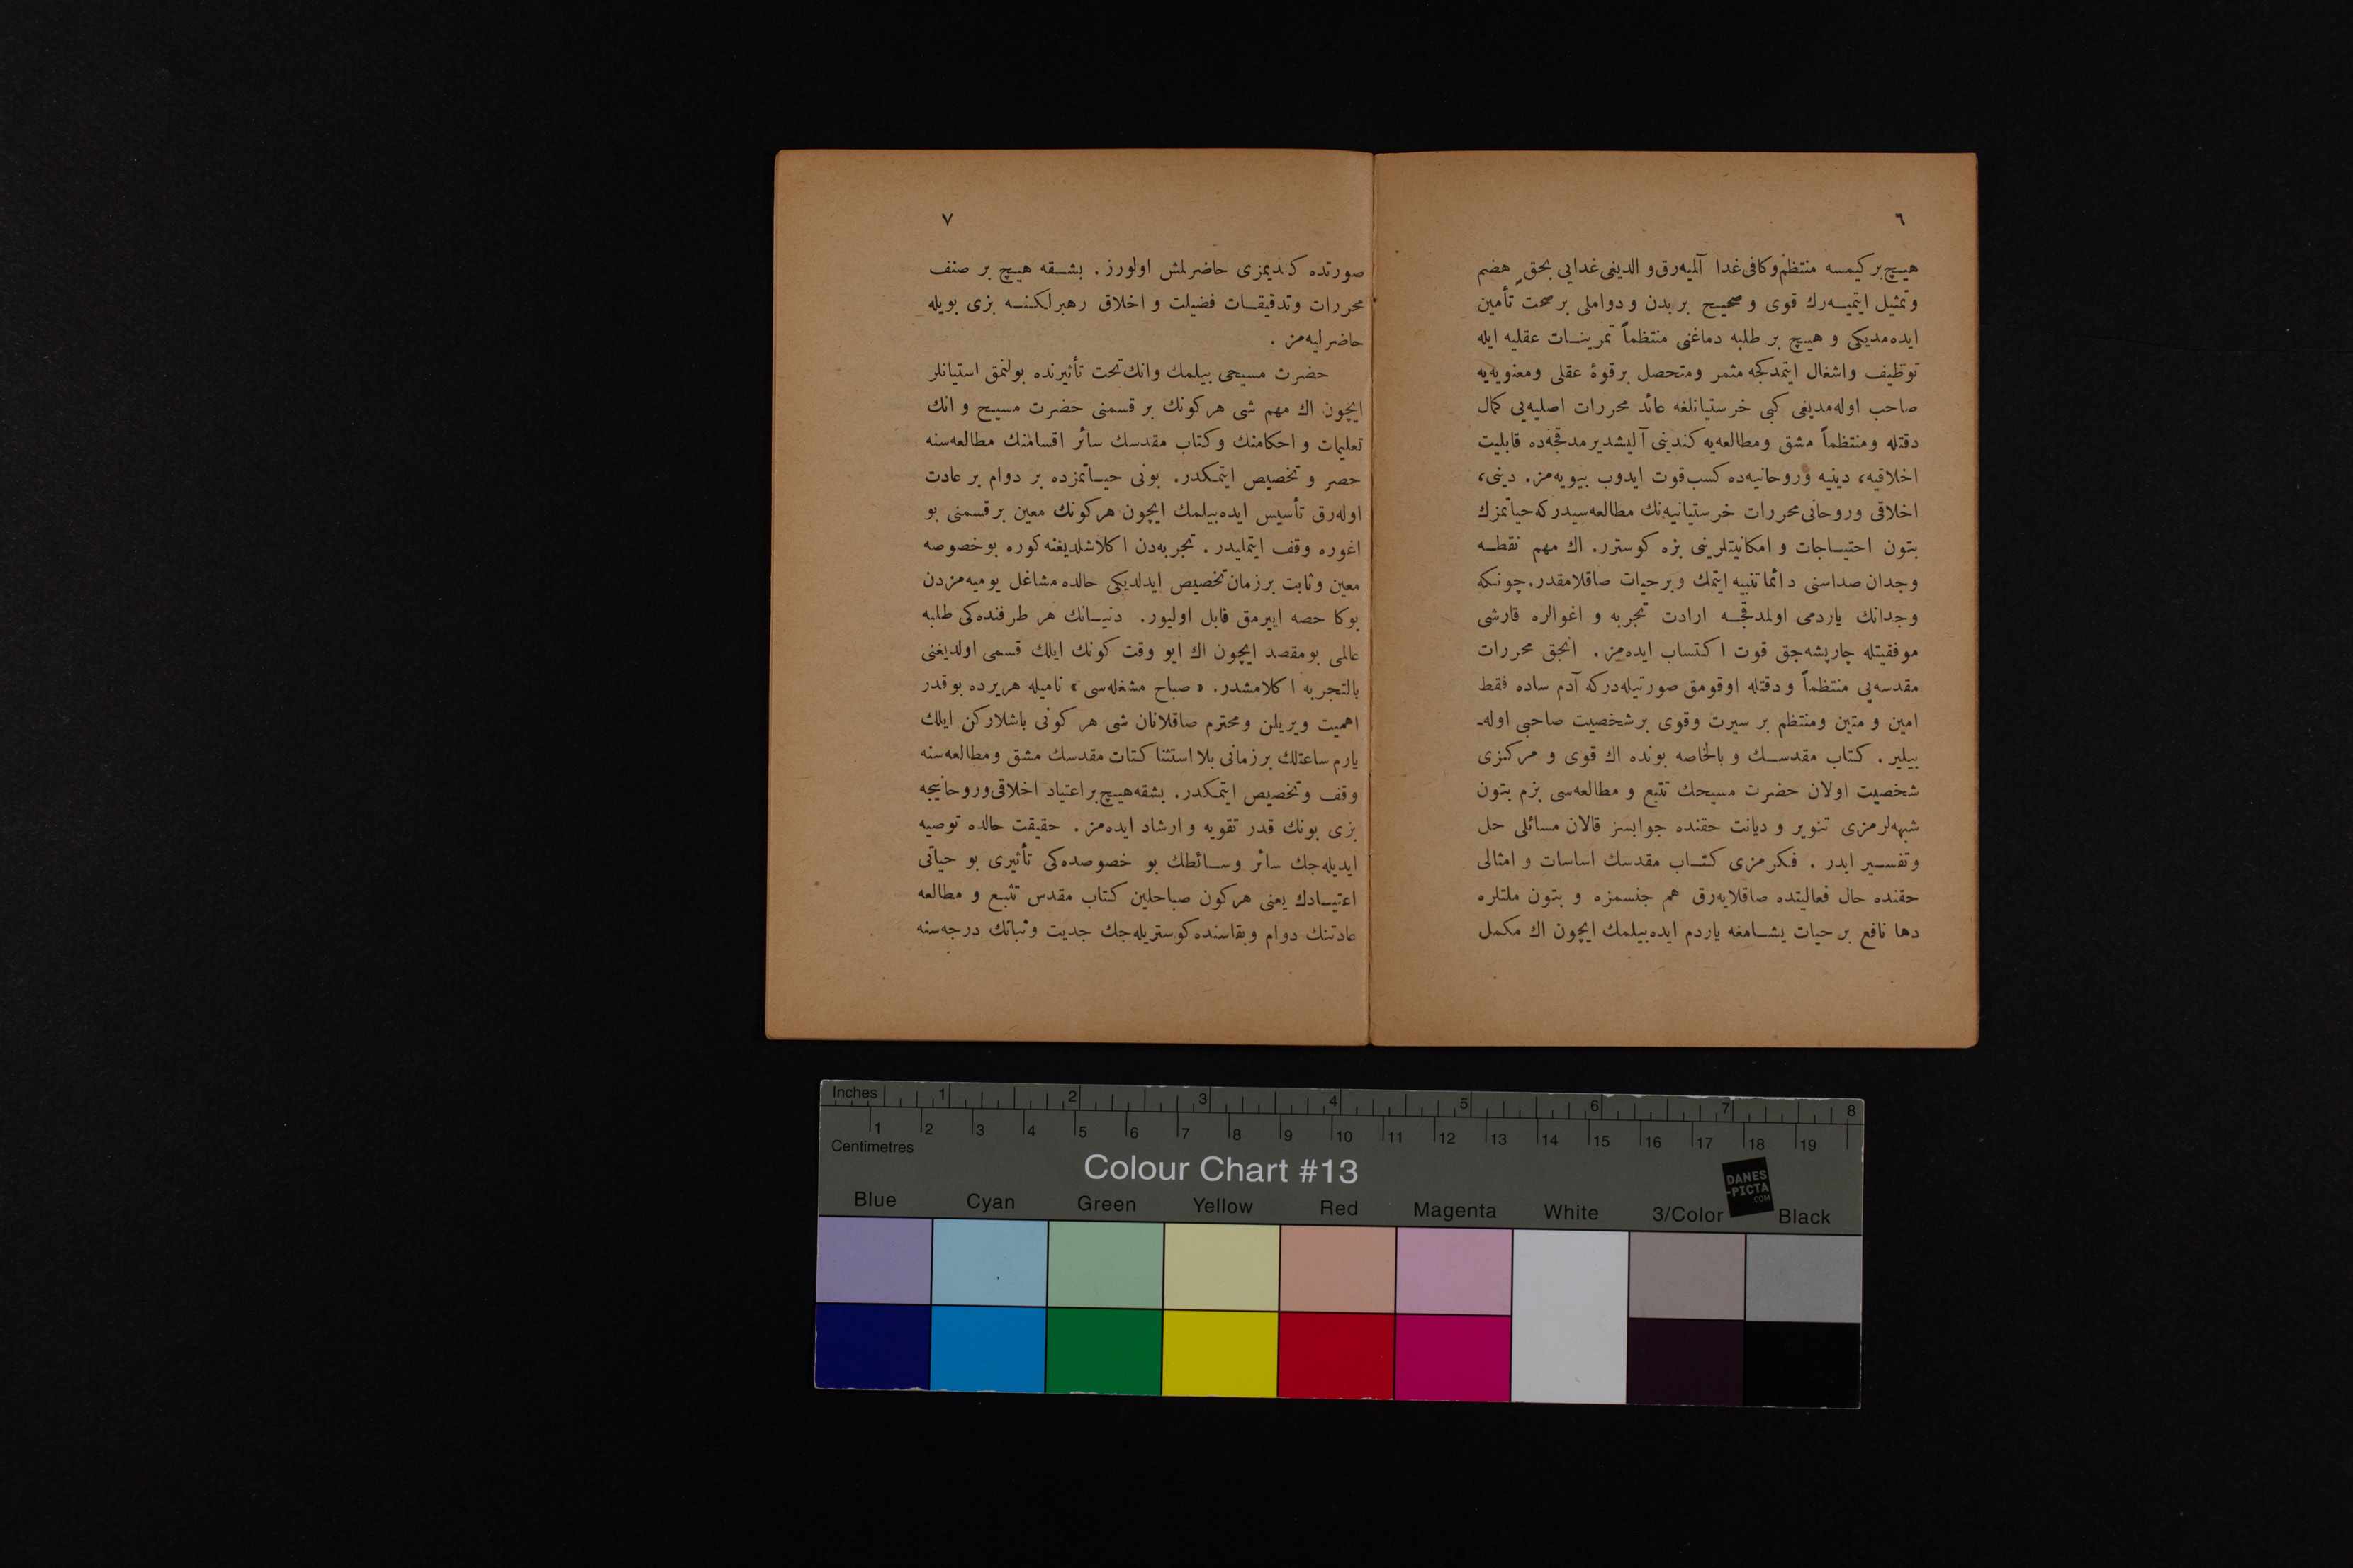 ٦
هیچ بر کیمسه منتظم و کافی غدا آلمیه‌رق و الدیغی غدایی بحق هضم
وتمثیل ایتمیه‌رك قوی و صحیح بر بدن و دواملی بر صحت تأمین
ایده‌مدیکی و هیچ بر طلبه دماغنی منتظماً تمرینات عقلیه ایله
توظیف واشغال ایتمدکجه مثمر ومتحصل برقوهٔ عقلی ومعنویه‌یه
صاحب اوله‌مدیغی کبی خرستیانلغه عائد محررات اصلیه‌یی کمال
دقتله ومنتظماً مشق ومطالعه‌یه کندینی آلیشدیرمدقجه‌ده قابلیت
اخلاقیه، دینیه وروحانیه‌ده کسب قوت ایدوب بیویه‌مز. دینی،
اخلاقی وروحانی محررات خرستیانیه‌نك مطالعه‌سیدرکه حیاتمزك
بتون احتیاجات و امکانیتلرینی بزه کوسترر. اك مهم نقطه
وجدان صداسنی دائما تنبیه ایتمك وبرحیات صاقلامقدر. چونکه
وجدانك یاردمی اولمدقجه ارادت تجربه و اغوالره قارشی
موفقیتله چارپشه‌جق قوت اکتساب ایده‌مز. انجق محررات
مقدسه‌یی منتظماً ودقتله اوقومق صورتیله‌درکه آدم ساده فقط
امین و متین ومنتظم بر سیرت وقوی برشخصیت صاحبی اوله-
بیلیر. کتاب مقدسك و بالخاصه بونده اك قوی و مرکزی
شخصیت اولان حضرت مسیحك تتبع و مطالعه‌سی بزم بتون
شبهه‌لرمزی تنویر و دیانت حقنده جوابسز قالان مسائلی حل
وتفسیر ایدر. فکرمزی کتاب مقدسك اساسات و امثالی
حقنده حال فعالیتده صاقلایه‌رق هم جنسمزه و بتون ملتلره
دها نافع بر حیات یشامغه یاردم ایده‌بیلمك ایچون اك مکمل
٧
صورتده کندیمزی حاضرلمش اولورز. بشقه هیچ بر صنف
محررات وتدقیقات فضیلت و اخلاق رهبرلکنه بزی بویله
حاضرلیه‌مز.
حضرت مسیحی بیلمك وانك تحت تأثیرنده بولنمق استیانلر
ایچون اك مهم شی هرکونك بر قسمنی حضرت مسیح و انك
تعلیمات و احکامنك و کتاب مقدسك سائر اقسامنك مطالعه‌سنه
حصر و تخصیص ایتمکدر. بونی حیاتمزده بر دوام بر عادت
اوله‌رق تأسیس ایده‌بیلمك ایچون هرکونك معین برقسمنی بو
اغوره وقف ایتملیدر. تجربه‌دن اکلاشلدیغنه کوره بوخصوصه
معین وثابت برزمان تخصیص ایدلدیکی حالده مشاغل یومیه‌مزدن
بوکا حصه اییرمق قابل اولیور. دنیانك هر طرفنده‌کی طلبه
عالمی بومقصد ایچون اك ایو وقت کونك ایلك قسمی اولدیغنی
بالتجربه اکلامشدر. « صباح مشغله‌سی » نامیله هریرده بوقدر
اهمیت ویریلن ومحترم صاقلانان شی هر کونی باشلارکن ایلك
یارم ساعتلك برزمانی بلااستثنا کتات مقدسك مشق ومطالعه‌سنه
وقف وتخصیص ایتمکدر. بشقه هیچ براعتیاد اخلاقی وروحانیجه
بزی بونك قدر تقویه وارشاد ایده‌مز. حقیقت حالده توصیه
ایدیله‌جك سائر وسائطك بو خصوصده‌کی تأثیری بو حیاتی
اعتیادك یعنی هرکون صباحلین کتاب مقدس تتبع و مطالعه
عادتنك دوام وبقاسنده کوستریله‌جك جدیت وثباتك درجه‌سنه
Inches 1 2 3 4 5 6 7 8
1 2 3 4 5 6 7 8 9 10 11 12 13 14 15 16 17 18 19
Centimetres
Colour Chart #13
DANES
-PICTA
.COM
Blue Cyan Green Yellow Red Magenta White 3/Color Black